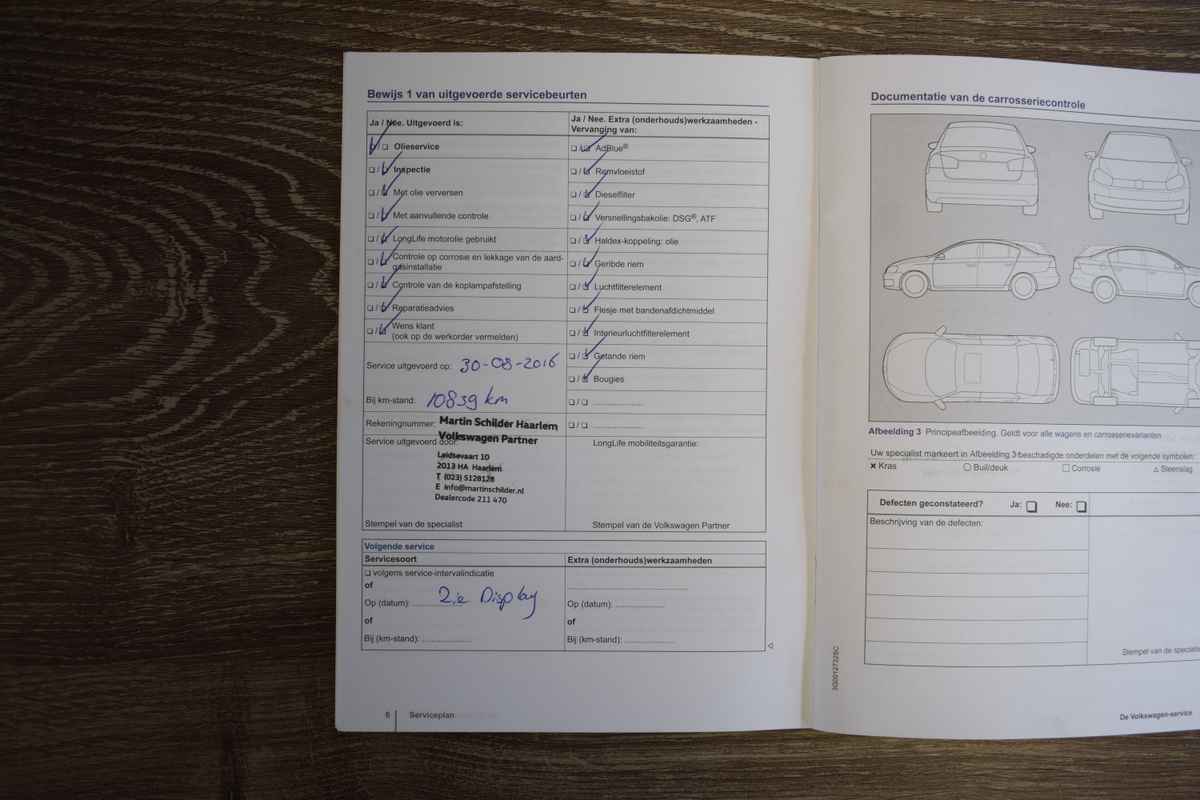 Bewijs 1 van uitgevoerde servicebeurten
Ja / Nee. Uitgevoerd is:
Olieservice
Inspectie
Met olie verversen
Met aanvullende controle
LongLife motorolie gebruikt
Controle op corrosie en lekkage van de aard-
gasinstallatie
Controle van de koplampafstelling
Reparatieadvies
Wens klant
(ook op de werkorder vermelden)
Service uitgevoerd op: 30-08-2016
Bij km-stand: 10839 km
Rekeningnummer:
Martin Schilder Haarlem
Volkswagen Partner
Service uitgevoerd door:
Leidsevaart 10
2013 HA Haarlem
T (023) 5128128
E info@martinschilder.nl
Dealercode 211 470
Stempel van de specialist
Ja / Nee. Extra (onderhouds)werkzaamheden -
Vervanging van:
AdBlue®
Remvloeistof
Dieselfilter
Versnellingsbakolie: DSG®, ATF
Haldex-koppeling: olie
Geribde riem
Luchtfilterelement
Flesje met bandenafdichtmiddel
Interieurluchtfilterelement
Getande riem
Bougies
LongLife mobiliteitsgarantie:
Stempel van de Volkswagen Partner
Volgende service
Servicesoort
volgens service-intervalindicatie
of
Op (datum): 2ie Display
of
Bij (km-stand):
Extra (onderhouds)werkzaamheden
Op (datum):
of
Bij (km-stand):
6 Serviceplan
Documentatie van de carrosseriecontrole
Afbeelding 3 Principeafbeelding. Geldt voor alle wagens en carrosserievarianten
Uw specialist markeert in Afbeelding 3 beschadigde onderdelen met de volgende symbolen:
Kras Buil/deuk Corrosie Steenslag
Defecten geconstateerd? Ja: Nee:
Beschrijving van de defecten:
Stempel van de specialis
De Volkswagen-service